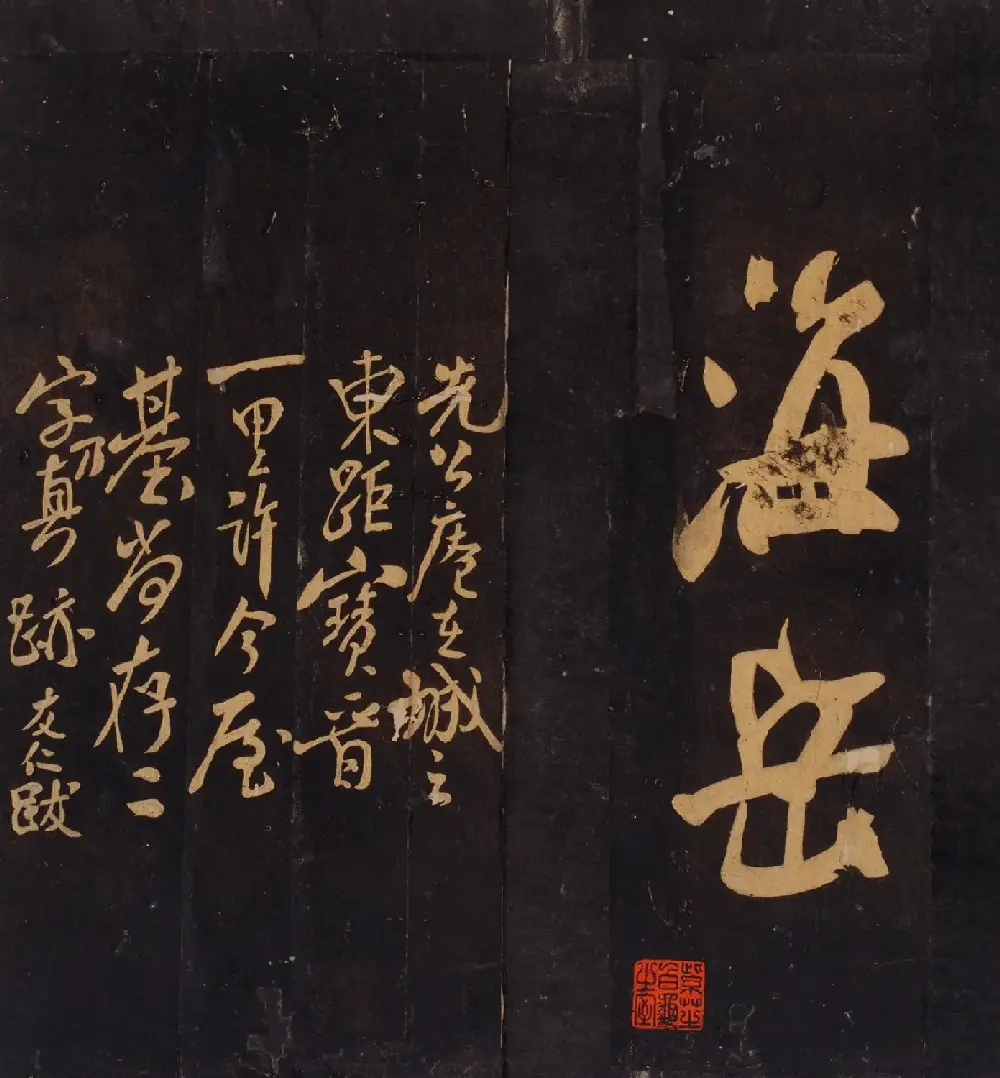 海岳
先公庵在城之
東距寶晉
一里許今屋
基尚存二
字乃真跡友仁跋